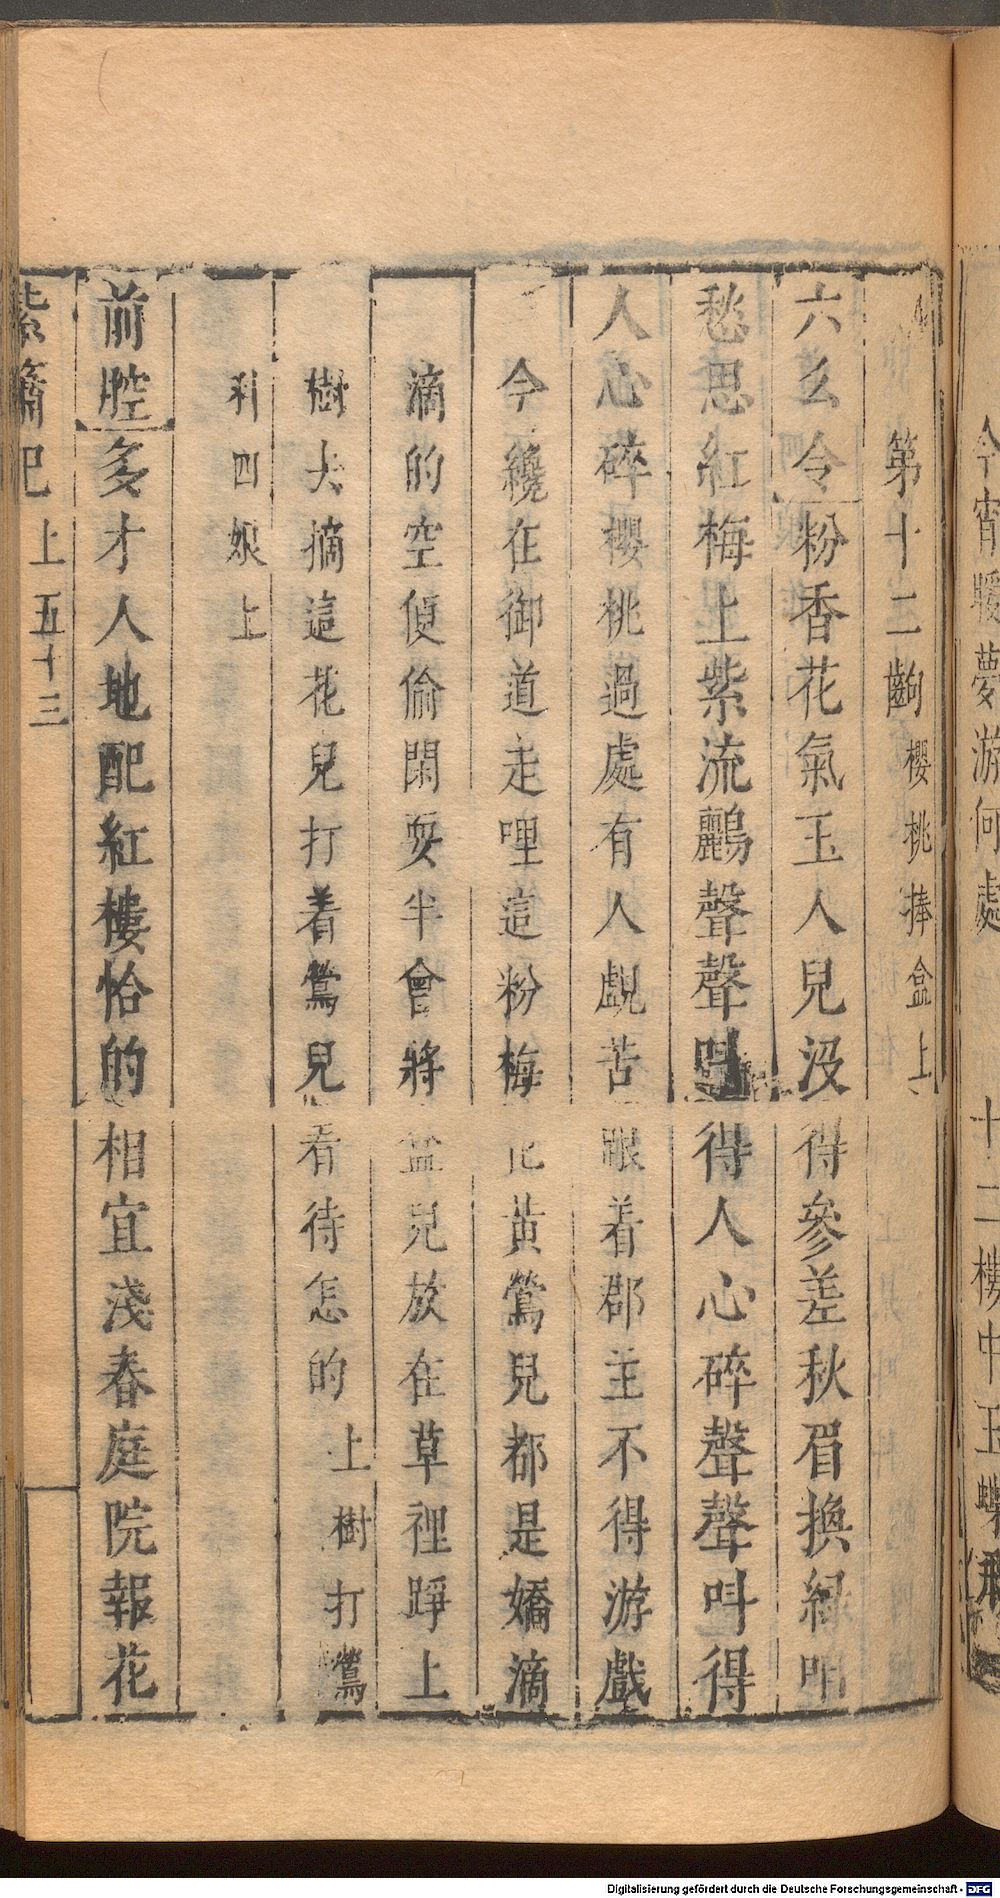 今宵暖夢游何處　十二樓中玉蝶飛
第十二齣 櫻桃捧盒上
六幺令粉香花氣玉人兒没得參差秋眉換緑
愁思紅梅上紫流鸝聲聲叫得人心碎聲聲叫得
人心碎櫻桃過處有人覷苦眼着郡主不得游戲
今纔在御道走哩這粉梅花黄鶯兒都是嬌滴
滴的空便偷閑耍半會將盒兒放在草裡踭上
樹去摘這花兒打着鶯兒看待怎的 上樹打鶯
科四娘上
前腔多才人地配紅樓恰的相宜淺春庭院報花
紫簫記 上 五十三
Digitalisierung gefördert durch die Deutsche Forschungsgemeinschaft - DFG